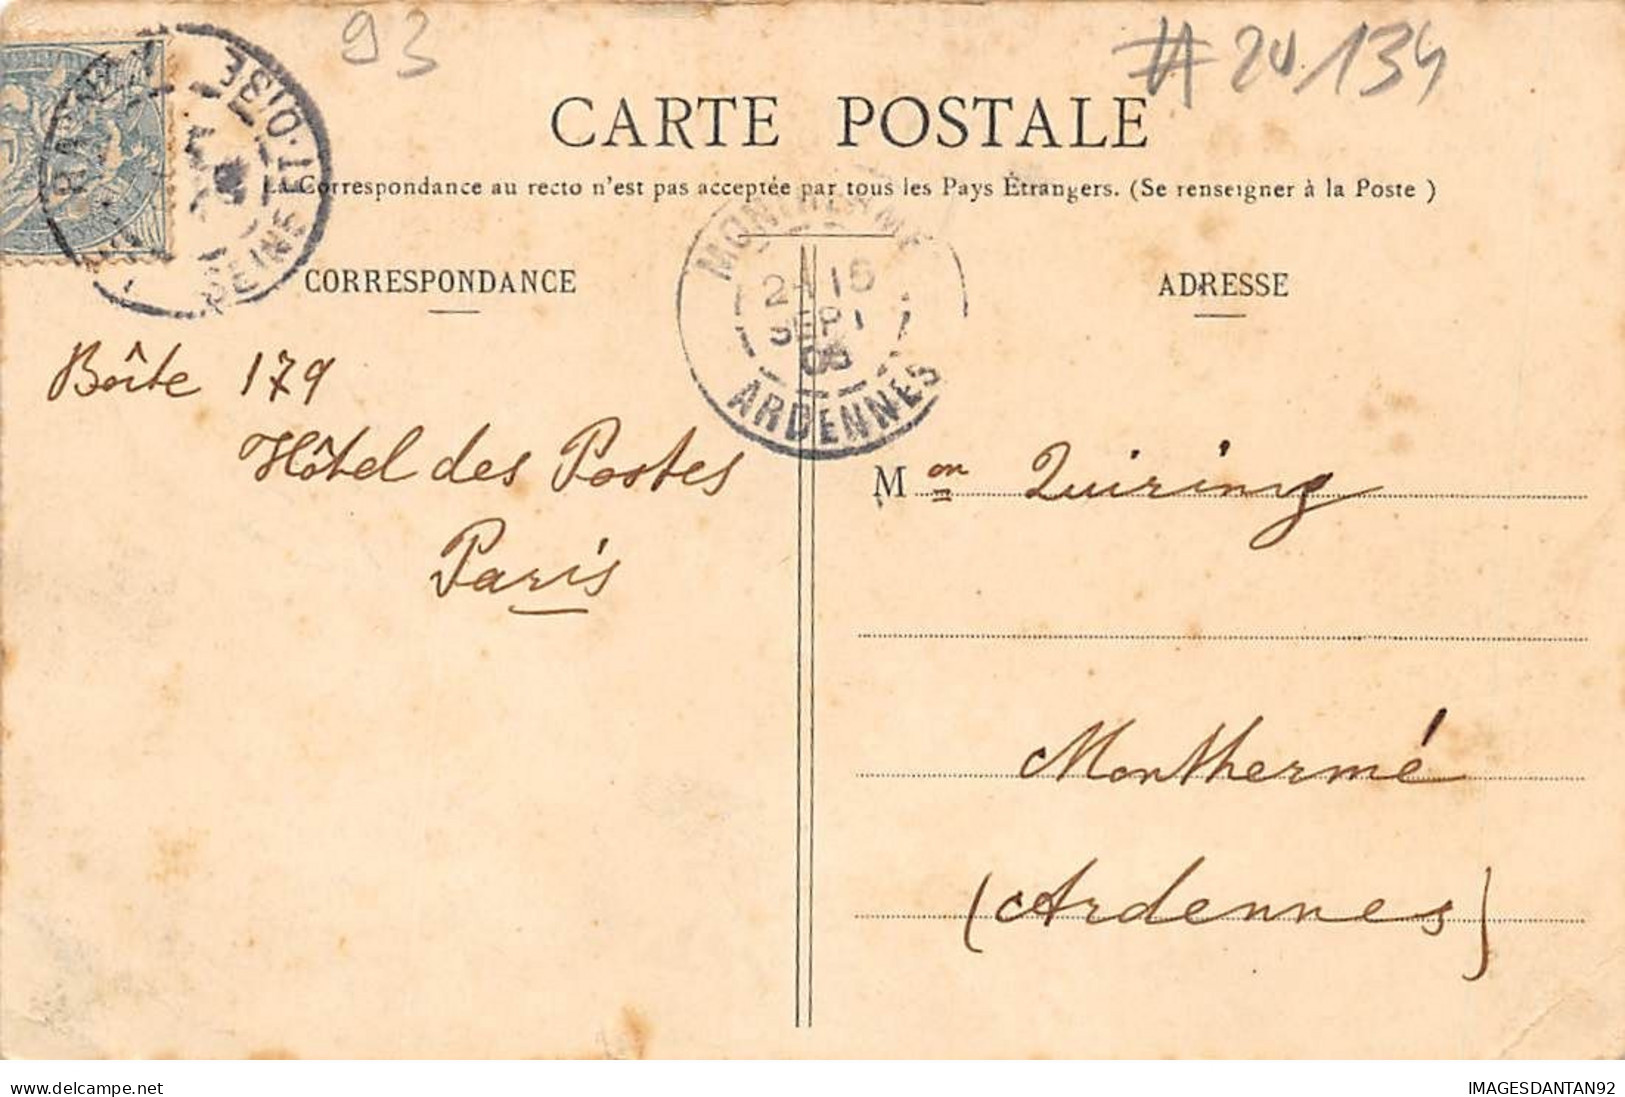 93
#20134
CARTE POSTALE
La Correspondance au recto n'est pas acceptée par tous les Pays Étrangers. (Se renseigner à la Poste)
SEINE-ET-OISE
MONTHERMÉ
ARDENNES
SEPT
CORRESPONDANCE
ADRESSE
Boîte 179
Hôtel des Postes
Paris
Mon Quiring
Monthermé
(Ardennes)
www.delcampe.net
IMAGESDANTAN92